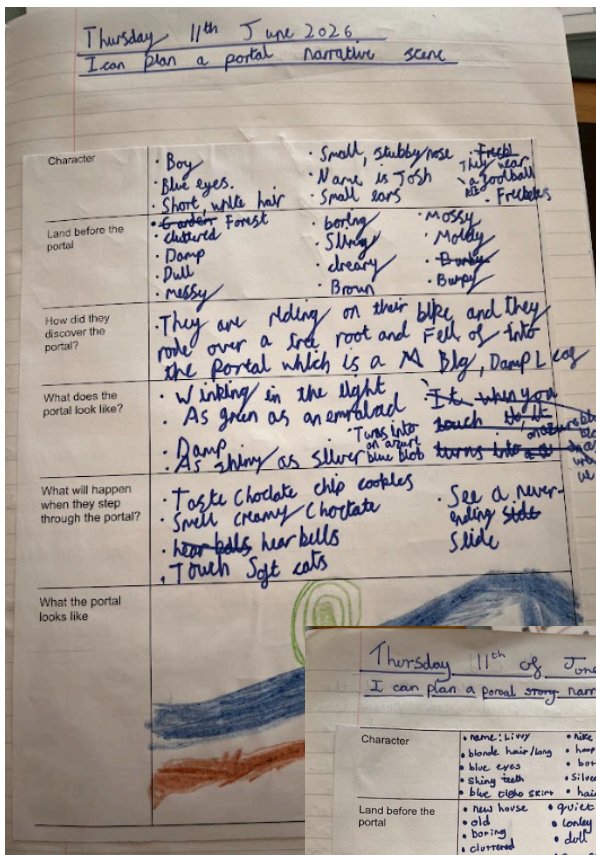 Thursday 11th June 2026
I can plan a portal narrative scene
Character
· Boy
· Blue eyes.
· Short, white hair
· Small, stubby nose
· Name is Josh
· Small ears
· Freckl
They wear
a football
kit
· Freckles
Land before the
portal
· Garden Forest
· cluttered
· Damp
· Dull
· messy
· boring
· Slimy
· dreary
· Brown
· Mossy
· Moldy
· Bumpy
How did they
discover the
portal?
· They are riding on their bike and they
rode over a tree root and Fell of into
the portal which is a Big, Damp Leaf
What does the
portal look like?
· Winking in the light
· As green as an emraload
· Damp
· As shiny as silver
· Twas into
an azure
blue blob
· It when you
touch it, it
turns into a
What will happen
when they step
through the portal?
· Taste Choclate chip cookies
· Smell creamy Choctate
· hear bells hear bells
· Touch Soft cats
· See a never-
ending slide
Slide
What the portal
looks like
Thursday 11th of June
I can plan a poroal story narr
Character
· name: Livvy
· blonde hair/long
· blue eyes
· shiny teeth
· nike
· hoop
· silve
· hai
Land before the
portal
· new house
· old
· boring
· cluttered
· quiet
· lonley
· dull